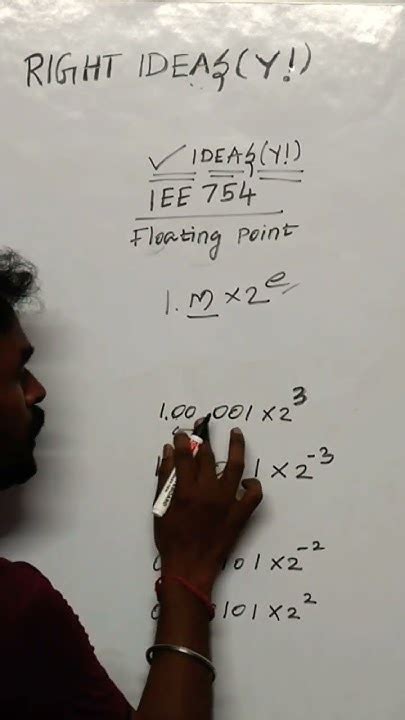 RIGHT IDEAS(Y!)
✓ IDEAS(Y!)
IEE 754
Floating point
1. m × 2^e
1.00 001 × 2^3
1 × 2^-3
101 × 2^-2
101 × 2^2